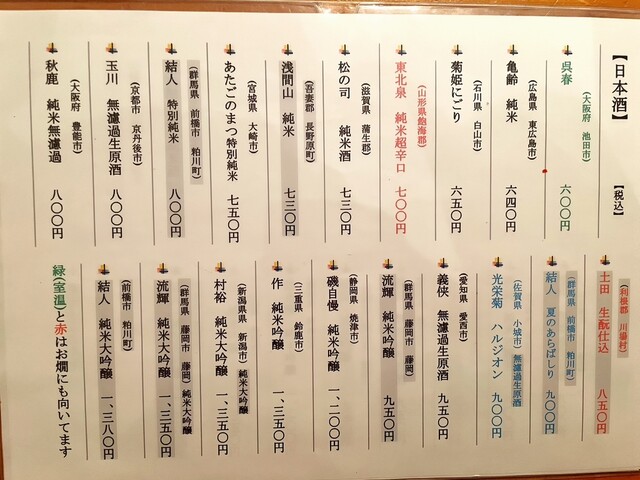 【日本酒】 【税込】
呉春 六〇〇円
（大阪府 池田市）
亀齢 純米 六四〇円
（広島県 東広島市）
菊姫にごり 六五〇円
（石川県 白山市）
東北泉 純米超辛口 七〇〇円
（山形県飽海郡）
松の司 純米酒 七三〇円
（滋賀県 蒲生郡）
浅間山 純米 七三〇円
（吾妻郡 長野原町）
あたごのまつ特別純米 七五〇円
（宮城県 大崎市）
結人 特別純米 八〇〇円
（群馬県 前橋市 粕川町）
玉川 無濾過生原酒 八〇〇円
（京都市 京丹後市）
秋鹿 純米無濾過 八〇〇円
（大阪府 豊能市）
土田 生酛仕込 八五〇円
（利根郡 川場村）
結人 夏のあらばしり 九〇〇円
（群馬県 前橋市 粕川町）
光栄菊 ハルジオン 九〇〇円
（佐賀県 小城市）無濾過生原酒
義侠 無濾過生原酒 九五〇円
（愛知県 愛西市）
流輝 純米吟醸 九五〇円
（群馬県 藤岡市 藤岡）
磯自慢 純米吟醸 一、二〇〇円
（静岡県 焼津市）
作 純米吟醸 一、三五〇円
（三重県 鈴鹿市）
村祐 純米大吟醸 一、三五〇円
（新潟県 新潟市）純米大吟醸
流輝 純米大吟醸 一、三五〇円
（群馬県 藤岡市 藤岡）純米大吟醸
結人 純米大吟醸 一、三八〇円
（前橋市 粕川町）
緑（室温）と赤はお燗にも向いてます